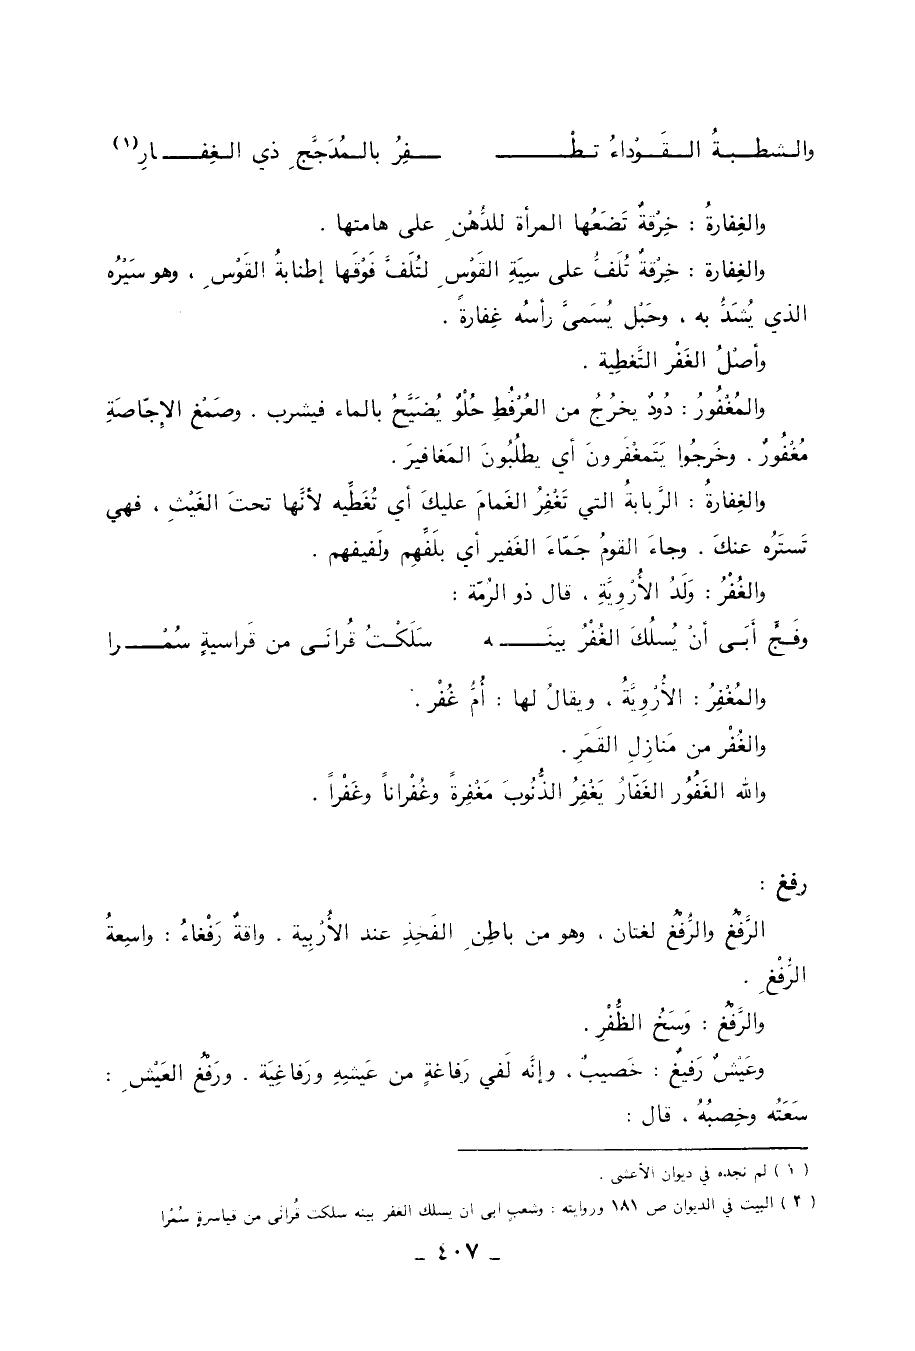 والشطبةُ القَوْداءُ تطْـ ـفِرُ بالمُدَجَّجِ ذي الغِفارِ(١)
والغِفارةُ : خِرْقةٌ تَضَعُها المرأة للدُّهْنِ على هامتها .
والغِفارة : خِرْقةٌ تُلَفُّ على سِيَةِ القَوْسِ لتُلَفَّ فَوْقَها إطنابةُ القَوْسِ ، وهو سَيْرُه
الذي يُشَدُّ به ، وحَبْل يُسَمىَّ رأسُه غِفارةً .
وأصْلُ الغَفْر التَّغطِية .
والمُغْفُورُ : دُودٌ يخرُجُ من العُرْفُطِ حُلْوٌ يُضَيَّحُ بالماء فيشرب . وصَمْغ الاِجّاصَةِ
مُغْفُورٌ . وخَرجُوا يَتَمغْفَرونَ أي يطلُبُونَ المَغافيرَ .
والغِفارةُ : الرَّبابةُ التي تَغْفِرُ الغَمامَ عليكَ أي تُغَطِّيه لأنَّها تحتَ الغَيْثِ ، فهي
تَستَرُه عنكَ . وجاءَ القومُ جَمّاءَ الغَفير أي بلَفِّهِم ولَفيفهم .
والغُفْرُ : وَلَدُ الأُرْوِيَّةِ ، قال ذو الرُمّة :
وفَجٍّ أبَى أنْ يُسلُكَ الغُفْرُ بينَـه سَلَكْتُ قُرانَى من قَراسيةٍ سُمْرا
والمُغْفِرُ : الأُرْوِيَّةُ ، ويقالُ لها : أُمُّ غُفْر .
والغُفْر من مَنازِلِ القَمَرِ .
والله الغَفُور الغَفّارُ يَغْفِرُ الذُّنُوبَ مَغْفِرةً وغُفْراناً وغَفْراً .
رفغ :
الرَّفْغُ والرُّفْغُ لغتان ، وهو من باطِنِ الفَخِذِ عند الأُرْبِية . واقةٌ رَفْغاءُ : واسِعةُ
الرُفْغِ .
والرَّفْغُ : وَسَخُ الظُّفْرِ .
وعَيْشٌ رَفيغٌ : خَصيبٌ ، وإنَّه لَفي رَفاغةٍ من عَيشِهِ ورَفاغِيَة . ورَفْغُ العَيْشِ :
سَعَتُه وخِصبُهُ ، قال :
( ١ ) لم نجده في ديوان الأعشى .
( ٢ ) البيت في الديوان ص ١٨١ وروايته : وشعبٍ ابى ان يسلك الغفر بينه سلكت قُرانى من قياسرةٍ سُمْرا
ـ ٤٠٧ ـ